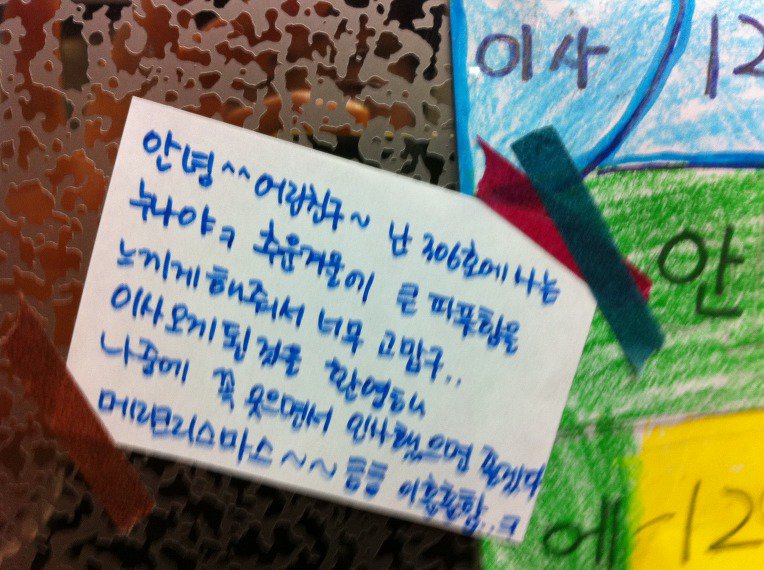 이사 12
안녕^^ 어린친구~ 난 306호에 사는
누나야ㅋ 추운겨울에 큰 따뜻함을
느끼게 해줘서 너무 고맙구..
이사오게된것을 환영해
나중에 꼭 웃으면서 인사했으면 좋겠다
메리크리스마스~~ 이훈훈함..ㅋ
안
에 12